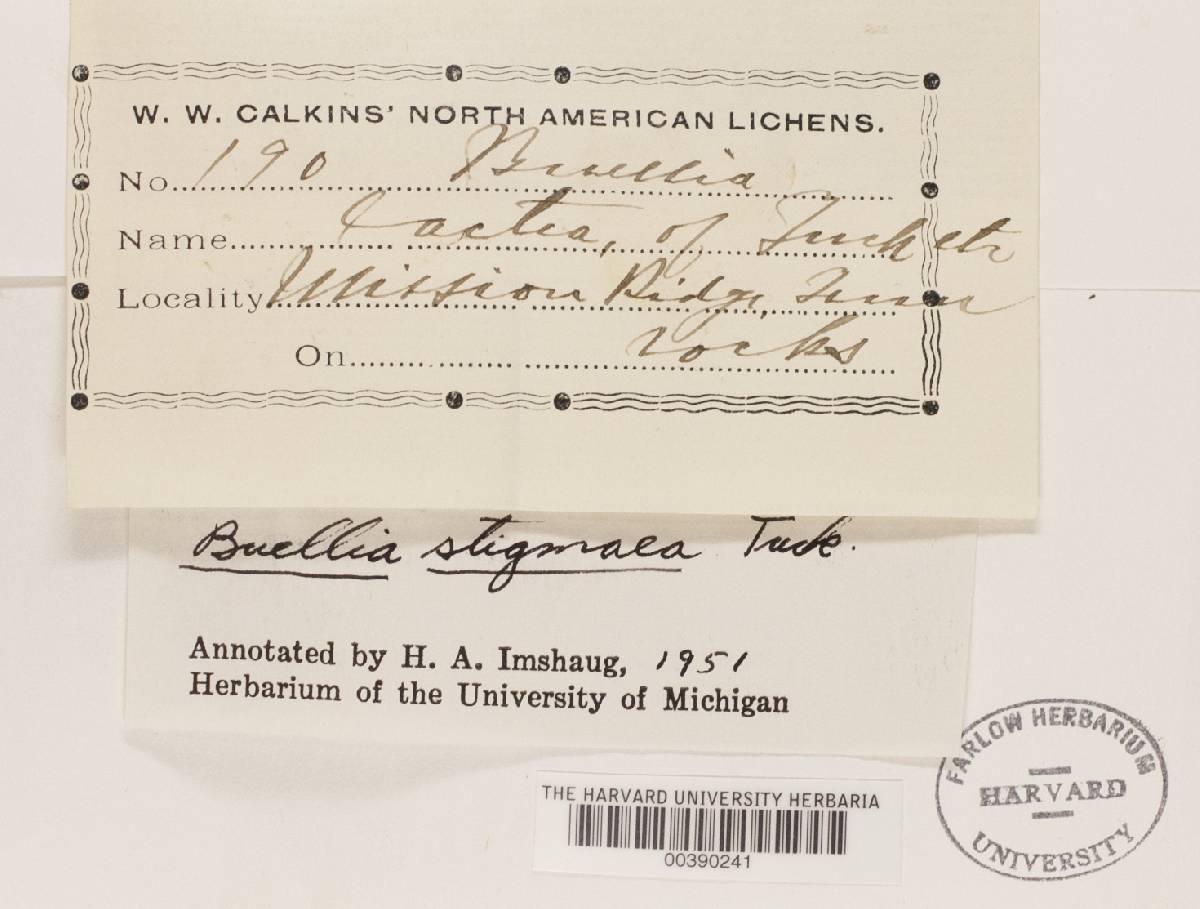 W. W. CALKINS' NORTH AMERICAN LICHENS.
No. 190 Buellia
Name lactea, of Tuck etc
Locality Mission Ridge, Tenn
On rocks
Buellia stigmaea Tuck.
Annotated by H. A. Imshaug, 1951
Herbarium of the University of Michigan
FARLOW HERBARIUM
HARVARD
UNIVERSITY
THE HARVARD UNIVERSITY HERBARIA
00390241